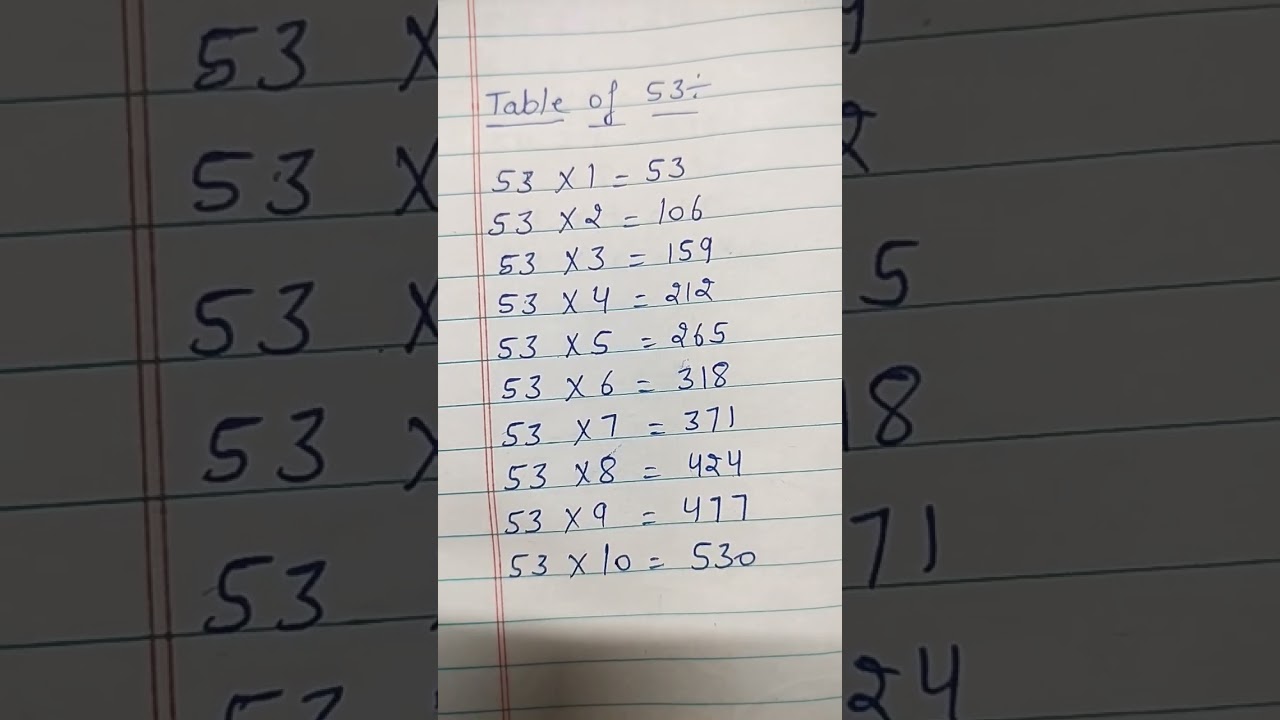 Table of 53÷
53 X 1 = 53
53 X 2 = 106
53 X 3 = 159
53 X 4 = 212
53 X 5 = 265
53 X 6 = 318
53 X 7 = 371
53 X 8 = 424
53 X 9 = 477
53 X 10 = 530